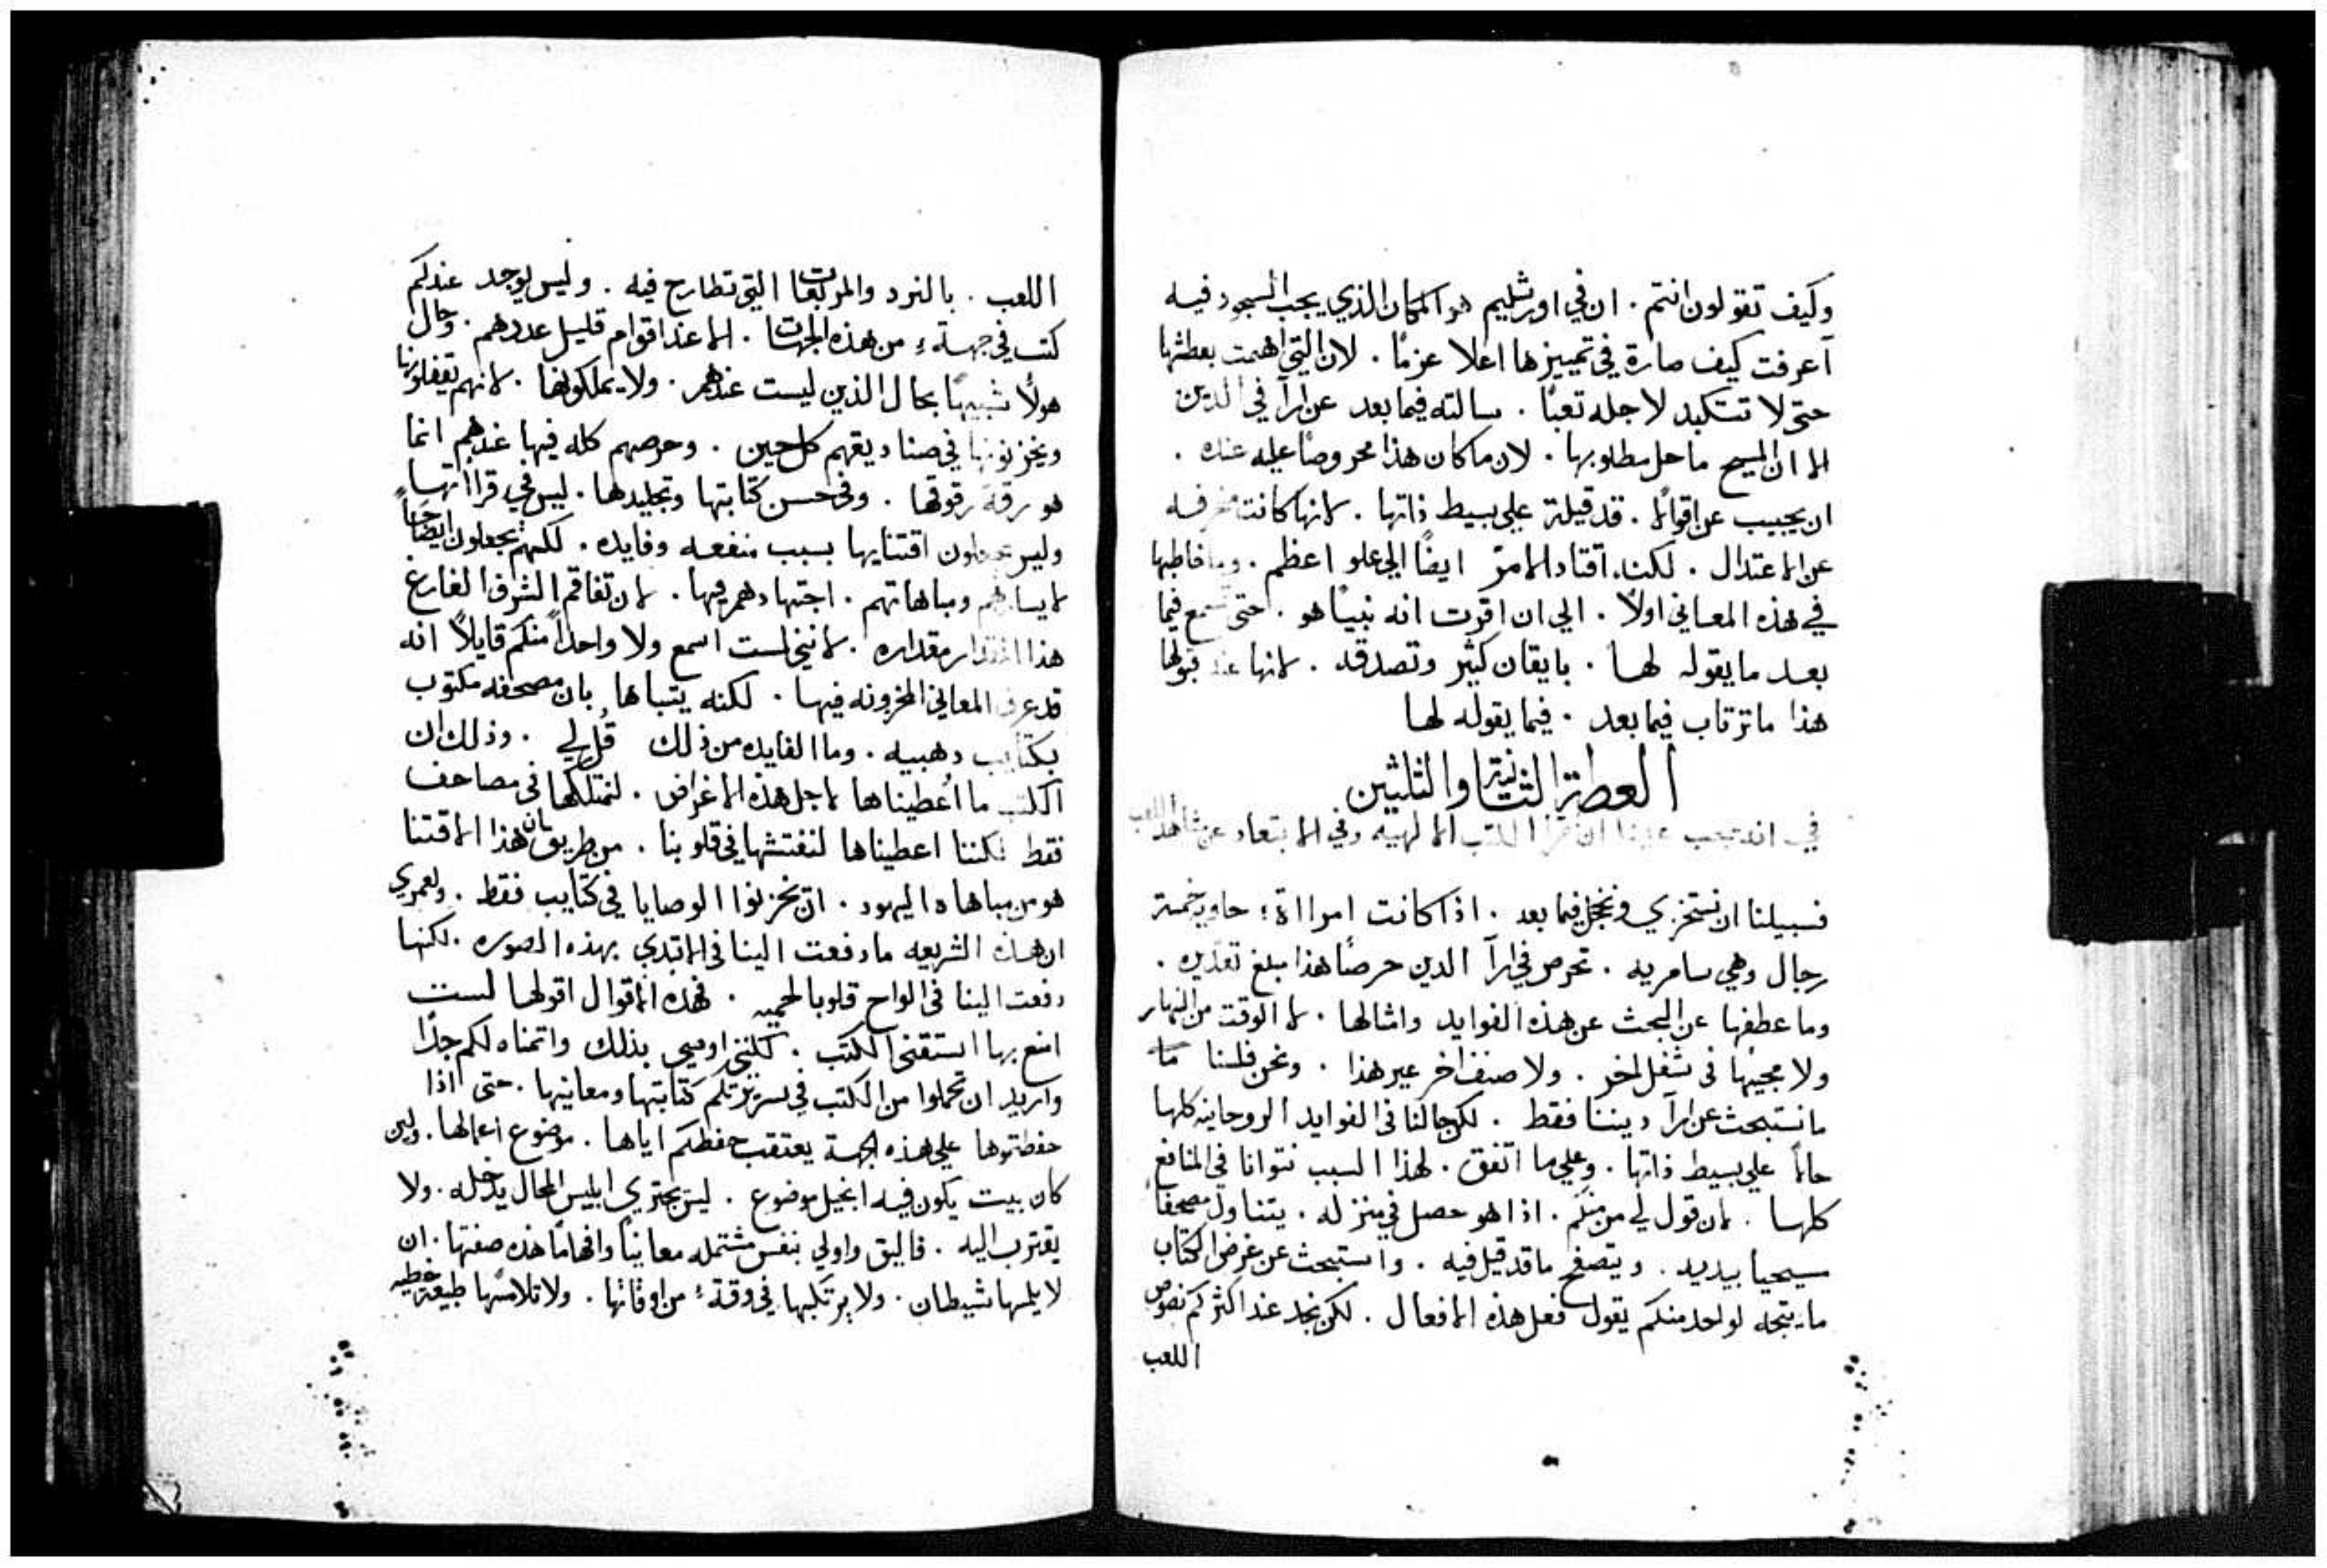 وكيف تقولون انتم . ان في اورشليم هو المكان الذي يجب السجود فيه
أعرفت كيف صارة في تمييزها اعلا عزمًا . لان التي اهمت بعطشها
حتى لا تتكبد لاجله تعبًا . سالته فيما بعد عن ارآ في الدين
الا ان المسيح ما حل مطلوبها . لان ما كان هذا محروصًا عليه عنده .
ان يجيب عن اقوالا . قد قيلة على بسيط ذاتها . لانها كانت منحرفه
عن الاعتدال . لكنه اقتاد الامرة ايضًا الى علو اعظم . وما خاطبها
في هذه المعاني اولاً . الي ان اقرت انه نبيًا هو . حتى تسمع فيما
بعد ما يقوله لها . بايقان كثير وتصدقه . لانها عند قبولها
هذا ما ترتاب فيما بعد . فيما يقوله لها
العظة الثانية والثلثين
في انه يجب علينا ان نقرا الكتب الالهيه وفي الابتعاد عن مشاهد اللعب
فسبيلنا ان نستخزي ونخجل فيما بعد . اذا كانت امرااة حاوية خمسة
رجال وهي سامريه . تحرص في ارآ الدين حرصًا هذا مبلغ تقديره .
وما عطفها عن البحث عن هذه الفوايد وامثالها . لا الوقت من النهار
ولا مجيها في شغل اخر . ولا صنف اخر غير هذا . ونحن فلسنا ما
ما نستبحث عن ارآ ديننا فقط . لكن حالنا في الفوايد الروحانيه كلها
حالاً على بسيط ذاتها . وعلى ما اتفق . لهذا السبب نتوانا في المنافع
كلها . لان قول لي من منكم . اذا هو حصل في منزله . يتناول مصحفًا
سيحيا بيديه . ويتصفح ما قد قيل فيه . واستبحث عن غرض الكتاب
ما يتجه لواحد منكم يقول فعل هذه الافعال . لكن نجد عند اكثركم نصوص
اللعب
اللعب . بالنرد والمربعات التي تطارح فيه . وليس يوجد عندكم
كتب في جهة من هذه الجهات . الا عند اقوام قليل عددهم . وحال
هولا شبيهًا بحال الذين ليست عندهم . ولا يملكونها . لانهم يقفلونها
ويخزنونها في صناديقهم كل حين . وحرصهم كله فيها عندهم انما
هو رقة رقوقها . وفي حسن كتابتها وتجليدها . ليس في قراأتها
وليس يجعلون اقتنايها بسبب منفعه وفايده . لكنهم يجعلون ايضاحًا
لايسارهم ومباهاتهم . اجتهادهم فيها . لان تفاقم الشرف الفارغ
هذا المقدار مقداره . لانني لست اسمع ولا واحدًا منكم قايلاً انه
قد عرف المعاني المخزونه فيها . لكنه يتباها بان مصحفه مكتوب
بكتايب دهبيه . وما الفايده من ذلك قُل لي . وذلك ان
الكتب ما اُعطيناها لاجل هذه الاغراض . لنمتلكها في مصاحف
فقط لكننا اعطيناها لنفتشها في قلوبنا . من طريق بان هذا الاقتنا
هو من مباهاه اليهود . ان يخزنوا الوصايا في كتايب فقط . ولعمري
ان هذه الشريعه ما دفعت الينا في الابتدي بهذه الصوره . لكنها
دفعت الينا في الواح قلوبًا لحميه . فهذه الاقوال اقولها لست
امنع بها استقنى الكتب . لكنني اوصي بذلك واتمناه لكم جدًا
واريد ان تحملوا من الكتب في سريرتكم كتابتها ومعانيها . حتى اذا
حفظتموها على هذه الجهة يعتقب حفظكم اياها . موضوع اعمالها . ولين
كان بيت يكون فيه انجيل موضوع . ليس يجتري ابليس المحال يدخله . ولا
يقترب اليه . فاليق واولي بنفس مشتمله معانيًا وافهامًا هذه صفتها . ان
لا يلمسها شيطان . ولا يرتكبها في وقتة من اوقاتها . ولا تلامسها طبيعة خطيه